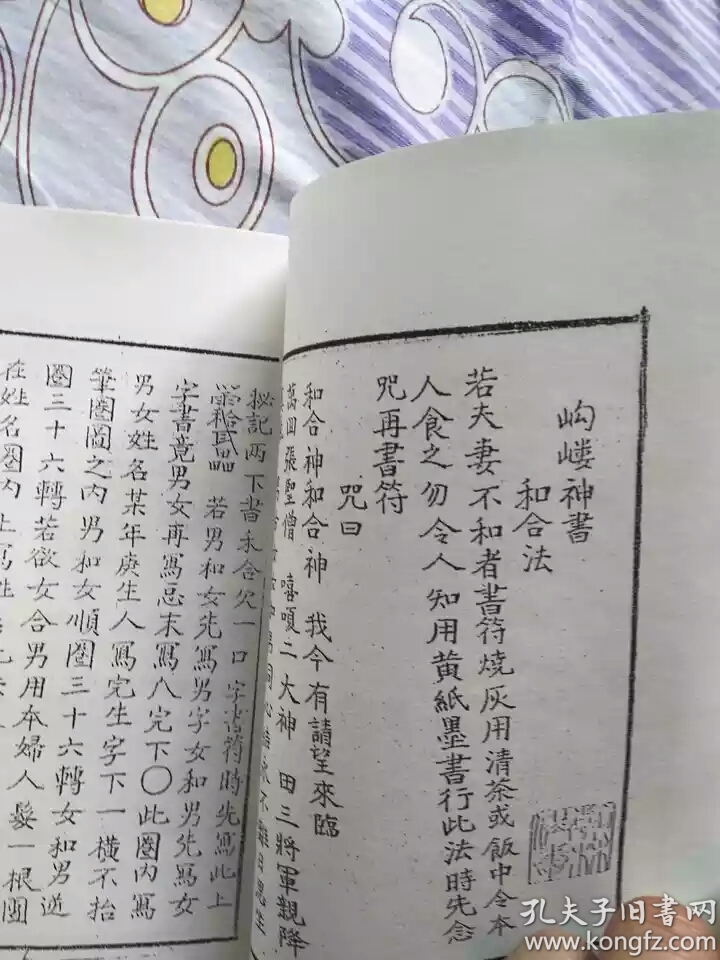 岣嶁神書
和合法
若夫妻不和者書符燒灰用清茶或飯中令本
人食之勿令人知用黄紙墨書行此法時先念
咒再書符
咒曰
和合神和合神 我今有請望來臨
萬回張聖僧 嘻嗄二大神 田三將軍親降
同心
秘記兩下書禾合欠一口字書符時先寫此上
若男和女先寫男字女和男先寫女
字書竟男女再寫忌末寫八完下〇此圈内寫
男女姓名某年庚生人寫完生字下一横不抬
筆圈圖之内男和女順圈三十六轉女和男逆
圈三十六轉若欲女合男用本婦人髮一根圈
在姓名圈内上寫姓
孔夫子旧书网
www.kongfz.com